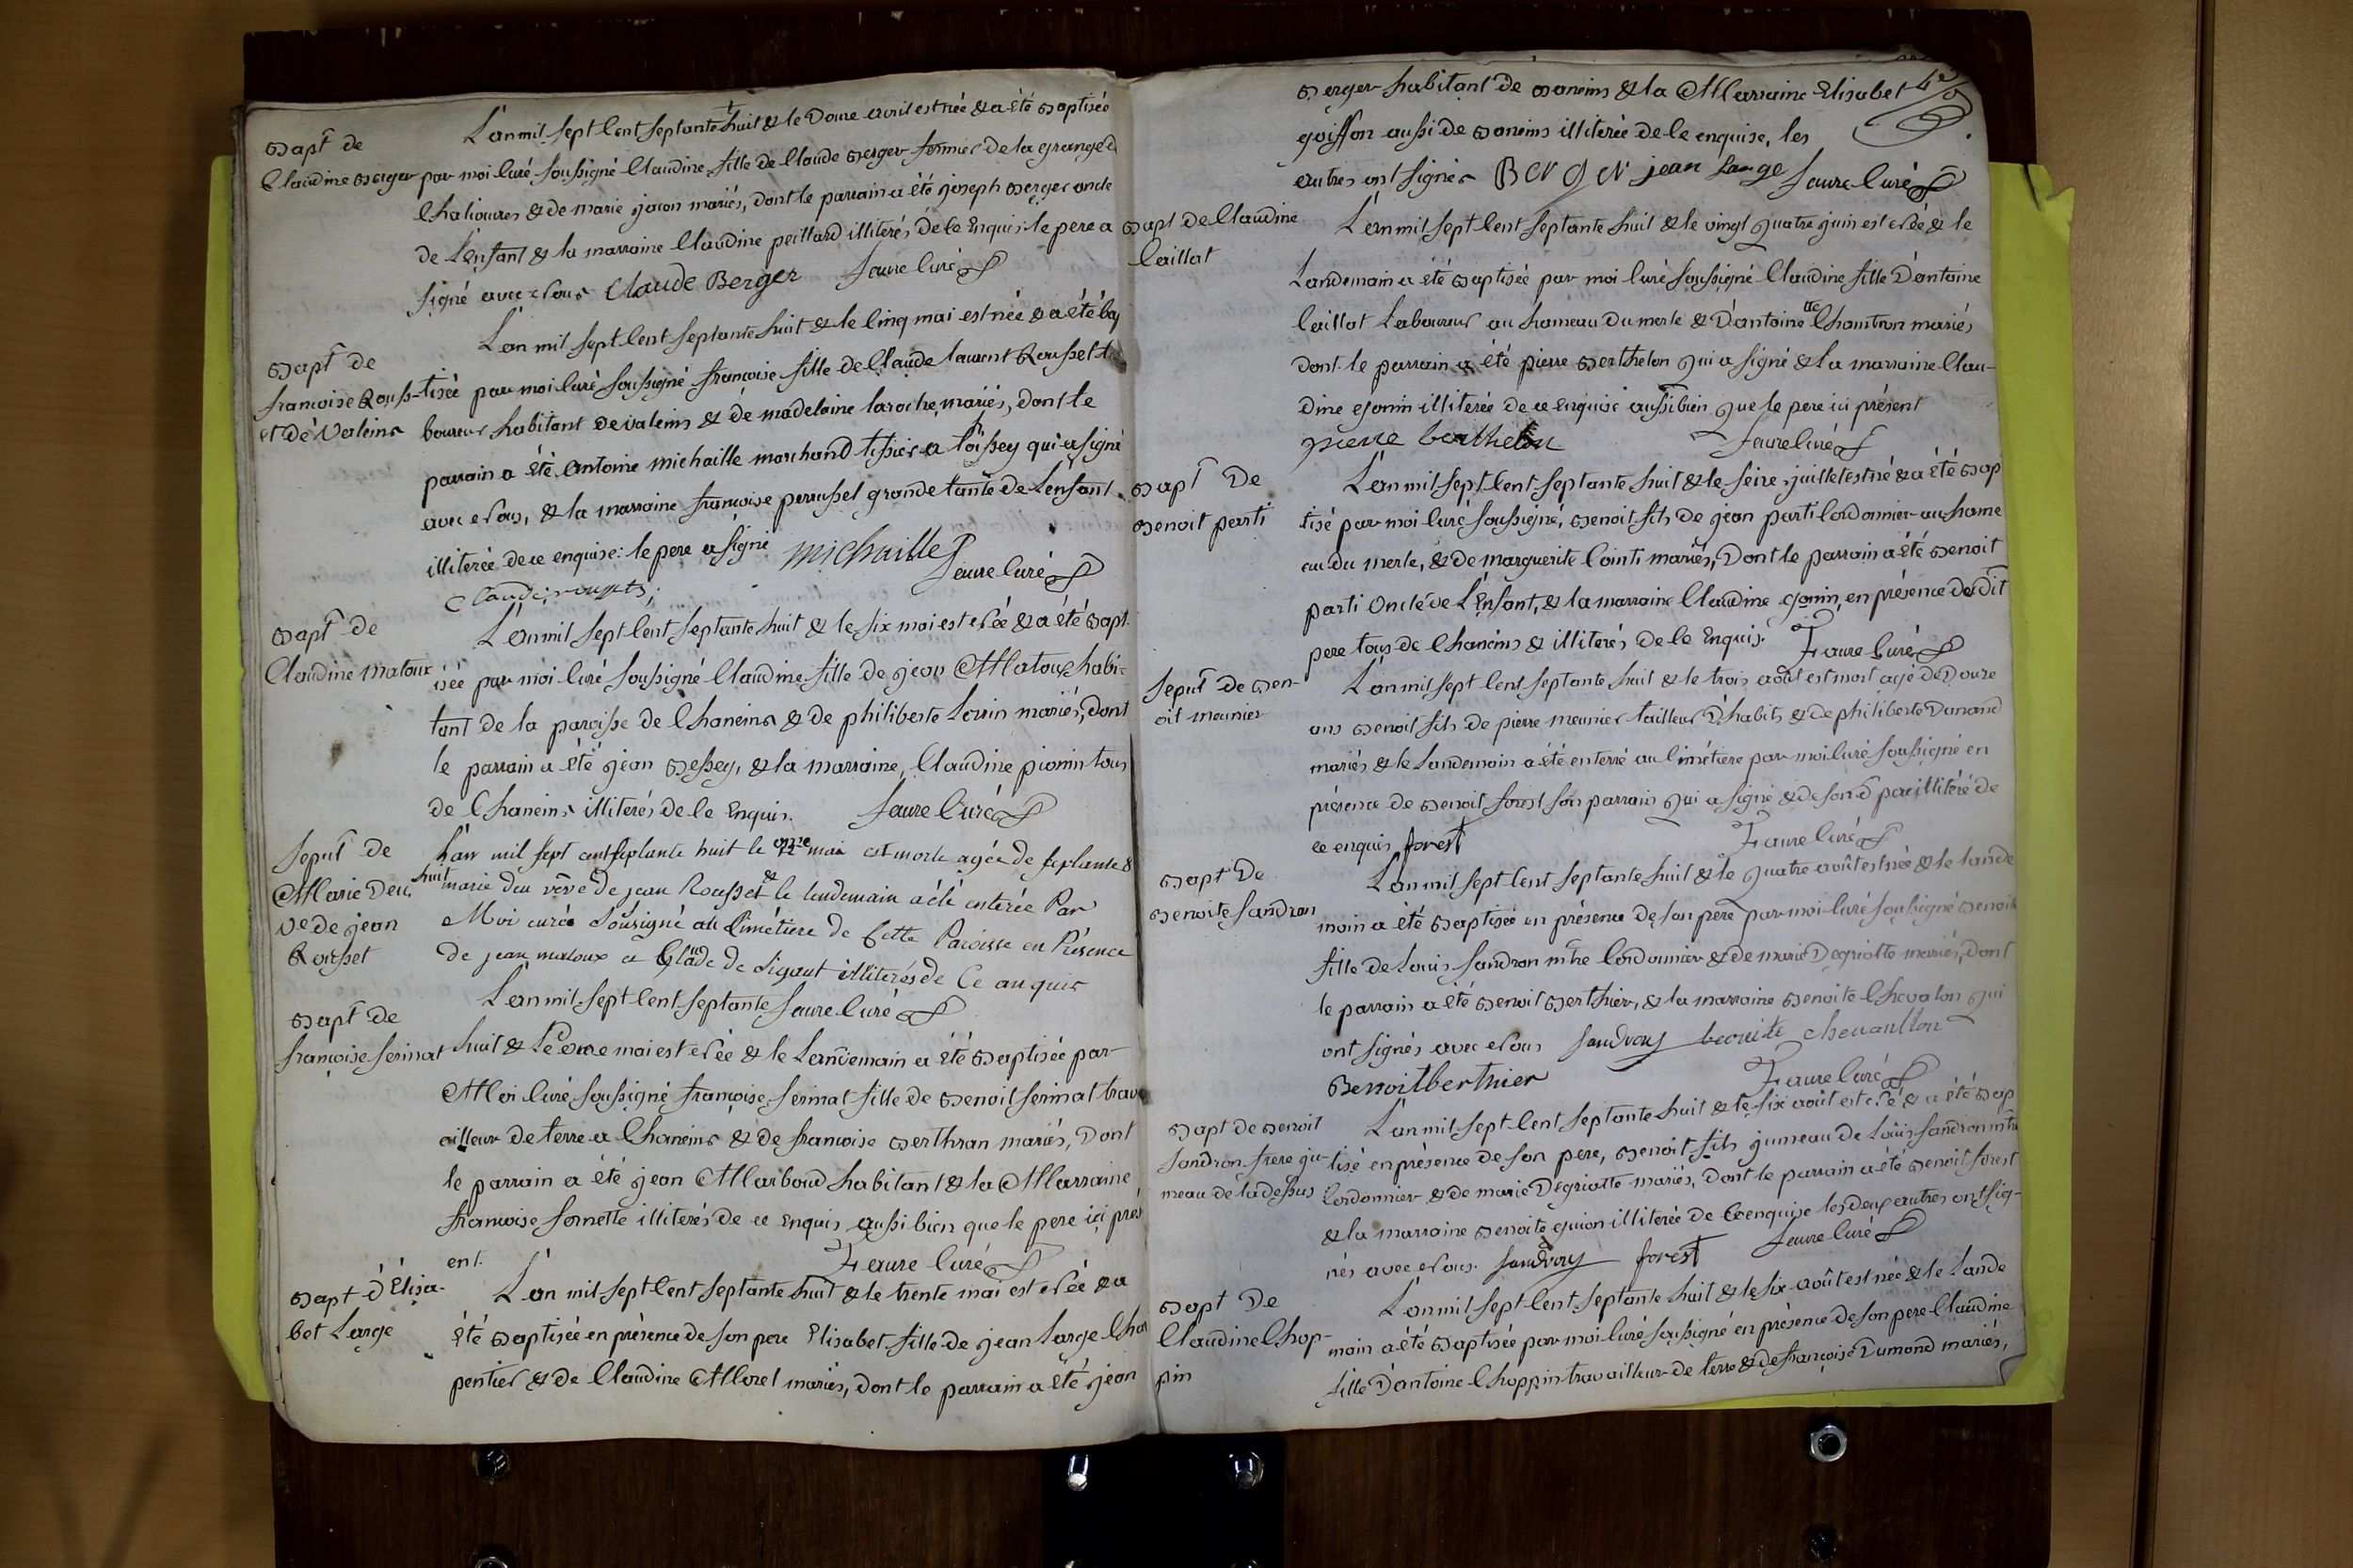 Bapt de
Claudine Berger
L'an mil sept cent septante huit & le Douze avril est née & a été Baptisée
par moi Curé soussigné Claudine fille de Claude Berger fermier de la grange d
Chalioures & de marie jacon mariés, dont le parrain a été joseph Berger oncle
de L'enfant & la marraine Claudine peillard illiterés de ce Enquis le pere a
signé avec Nous Claude Berger faure Curé
Bapt de
francoise Rouss-
et de Valeins
L'an mil sept Cent septante huit & le Cinq mai est née & a été bap
tisée par moi Curé soussigné francoise fille de Claude laurent Rousset la
boureur habitant de valeins & de madelaine laroche mariés, dont le
parrain a été Antoine michaille marchand tissier a toissey qui a signé
avec Nous, & la marraine francoise perrussel grande tante de L'enfant
illiterée de ce enquise: le pere a signé michaille faure Curé
Bapt de
Claudine matoux
L'an mil sept Cent septante huit & le six mai est Née & a été Bapt
isée par moi Curé soussigné Claudine fille de jean Matoux habi-
tant de la paroisse de Chaneins & de philiberte Lorin mariés, dont
le parrain a été jean Bessey, & la marraine Claudine pionin tous
de Chaneins illiterés de Ce Enquis. faure Curé
Sepult de
Marie Deu
Ve de jean
Rousset
L'an mil sept cent septante huit le onze mai est morte agée de septante &
huit marie deu vêve de jean Rousset & le lendemain a été enterée Par
Moi curée Sousigné au Cimétiere de Cette Paroisse en Présence
de jean matoux et Glaude de Sigaut illiterés de Ce anquis
faure Curé
Bapt de
françoise ferinat
L'an mil sept Cent septante
huit & le onze mai est Née & le Landemain a été Baptisée par
Moi Curé soussigné françoise ferinat fille de Benoit ferinat trava
ailleur de terre a Chaneins & de francoise Berthran mariés, Dont
le parrain a été jean Marboud habitant & la Marraine
francoise fornette illiterés de ce Enquis aussi bien que le pere ici prés
ent. Faure Curé
Bapt d'Elisa-
bet Large
L'an mil sept Cent septante huit & le trente mai est Née & a
été Baptisée en présence de son pere Elisabet fille de jean Large Char
pentier & de Claudine Morel mariés, dont le parrain a été jean
Berger habitant de Baneins & la Marraine Elisabet
goiffon aussi de Baneins illiterée de Ce enquise, les
autres ont signés Berger jean Large faure Curé
Bapt de Claudine
Caillat
L'an mil sept Cent septante huit & le vingt Quatre juin est Née & le
Landemain a été Baptisée par moi Curé soussigné Claudine fille D'antoine
Caillat Laboureur au hameau Du merle & D'antoinette Chamtron mariés
dont le parrain a été pierre Berthelon Qui a signé & La marraine Clau-
dine Gonin illiterée de ce enquise aussi bien Que le pere ici présent
pierre berthelon faure Curé
Bapt De
Benoit parti
L'an mil sept Cent septante huit & le seize juillet est né & a été Bap
tisé par moi Curé soussigné, Benoit fils de jean parti Cordonnier au hame
au du merle, & de marguerite Cointi mariés, Dont le parrain a été Benoit
parti Oncle de L'Enfant, & la marraine Claudine Gonin, en présence du dit
pere tous de Chaneins & illiterés de Ce Enquis. Faure Curé
Sepult de Ben-
oit meunier
L'an mil sept Cent septante huit & le trois août est mort agé de Douze
ans Benoit fils de pierre meunier tailleur D'habits & de philiberte Dunand
mariés & le Landemain a été enterré au Cimétiere par moi Curé soussigné en
présence de Benoit forest son parrain Qui a signé & de son d pere illitéré de
ce enquis forest Faure Curé
Bapt De
Benoite Sandron
L'an mil sept Cent septante huit & le Quatre août est née & le lande
main a été Baptisée en présence de son pere par moi Curé soussigné Benoite
fille de Louis Sandron mtre Cordonnier & de marie Degriotte mariés, dont
le parrain a été Benoit Berthier, & la marraine Benoite Chevalon Qui
ont signés avec Nous Sandron benoite chevallon
Benoit berthier Faure Curé
Bapt de Benoit
Sandron frere ju-
meau de la dessus
L'an mil sept Cent septante huit & le six août est Né & a été Bap
tisé en présence de son pere, Benoit fils jumeau de Louis Sandron mtre
Cordonnier & de marie Degriotte mariés, dont le parrain a été Benoit forest
& la marraine Benoite guion illiterée de Ce enquise les deux autres ont sig-
nés avec Nous. Sandron forest faure Curé
Bapt De
Claudine Chop-
pin
L'an mil sept Cent septante huit & le six août est née & le Lande
main a été Baptisée par moi Curé soussigné en présence de son pere Claudine
fille D'antoine Choppin travailleur de terre & de françoise Dumond mariés,